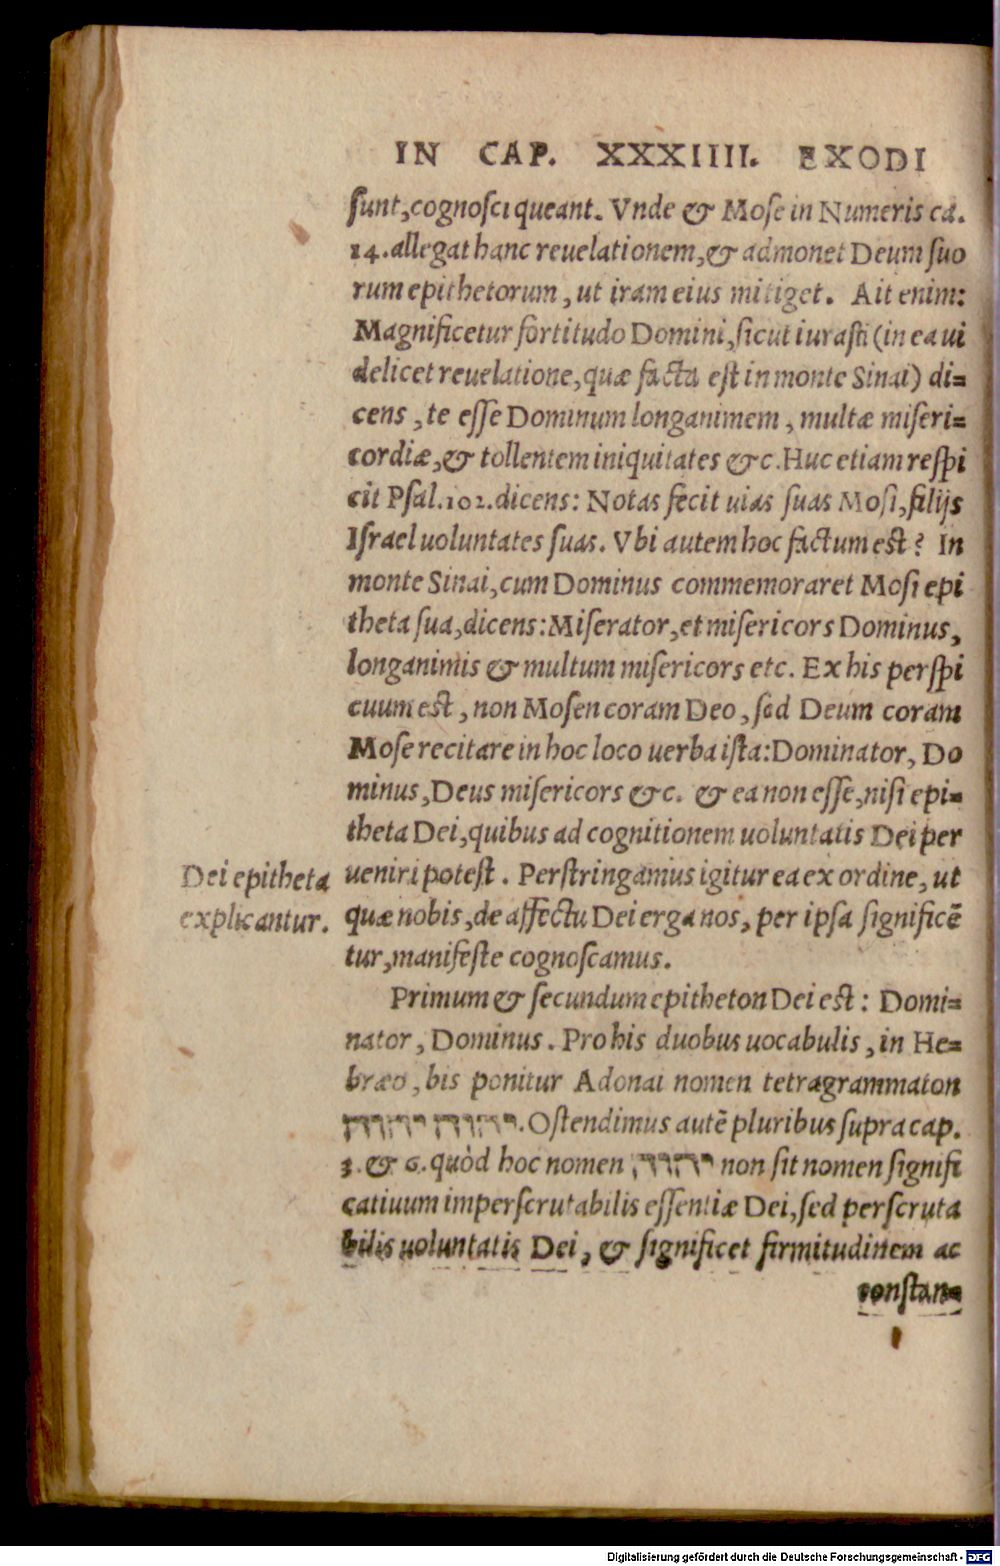 IN CAP. XXXIIII. EXODI
ſunt, cognoſci queant. Vnde & Moſe in Numeris ca.
14. allegat hanc reuelationem, & admonet Deum ſuo
rum epithetorum, ut iram eius mitiget. Ait enim:
Magnificetur fortitudo Domini, ſicut iuraſti (in ea ui
delicet reuelatione, quæ facta eſt in monte Sinai) di=
cens, te eſſe Dominum longanimem, multæ miſeri=
cordiæ, & tollentem iniquitates &c. Huc etiam reſpi
cit Pſal. 102. dicens: Notas fecit uias ſuas Moſi, filijs
Iſrael uoluntates ſuas. Vbi autem hoc factum eſt? In
monte Sinai, cum Dominus commemoraret Moſi epi
theta ſua, dicens: Miſerator, et miſericors Dominus,
longanimis & multum miſericors etc. Ex his perſpi
cuum eſt, non Moſen coram Deo, ſed Deum coram
Moſe recitare in hoc loco uerba iſta: Dominator, Do
minus, Deus miſericors &c. & ea non eſſe, niſi epi=
theta Dei, quibus ad cognitionem uoluntatis Dei per
Dei epitheta
explicantur.
ueniri poteſt. Perſtringamus igitur ea ex ordine, ut
quæ nobis, de affectu Dei erga nos, per ipſa ſignificē
tur, manifeſte cognoſcamus.
Primum & ſecundum epitheton Dei eſt: Domi=
nator, Dominus. Pro his duobus uocabulis, in He=
bræo, bis ponitur Adonai nomen tetragrammaton
יהוה יהוה. Oſtendimus autē pluribus ſupra cap.
3. & 6. quòd hoc nomen יהוה non ſit nomen ſignifi
catiuum imperſcrutabilis eſſentiæ Dei, ſed perſcruta
bilis uoluntatis Dei, & ſignificet firmitudinem ac
conſtan=
Digitalisierung gefördert durch die Deutsche Forschungsgemeinschaft - DFG